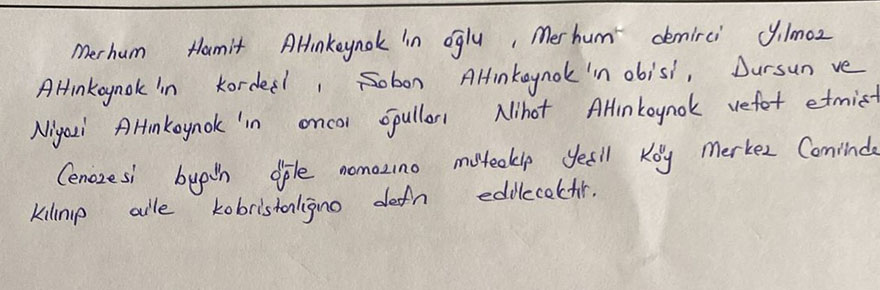 Merhum Hamit Altınkaynak'ın oğlu, Merhum demirci Yılmaz
Altınkaynak'ın kardeşi, Şaban Altınkaynak'ın abisi, Dursun ve
Niyazi Altınkaynak'ın amcaı oğulları Nihat Altınkaynak vefat etmişt
Cenazesi bugün öğle namazına müteakip Yeşil Köy Merkez Camiinde
Kılınıp aile kabristanlığına defn edilecektir.